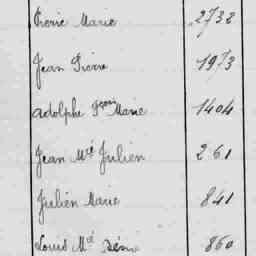 Pierre Marie 2732
Jean Pierre 1973
Adolphe Fçois Marie 1404
Jean Mie Julien 261
Julien Marie 841
Louis Mie Rémi 860